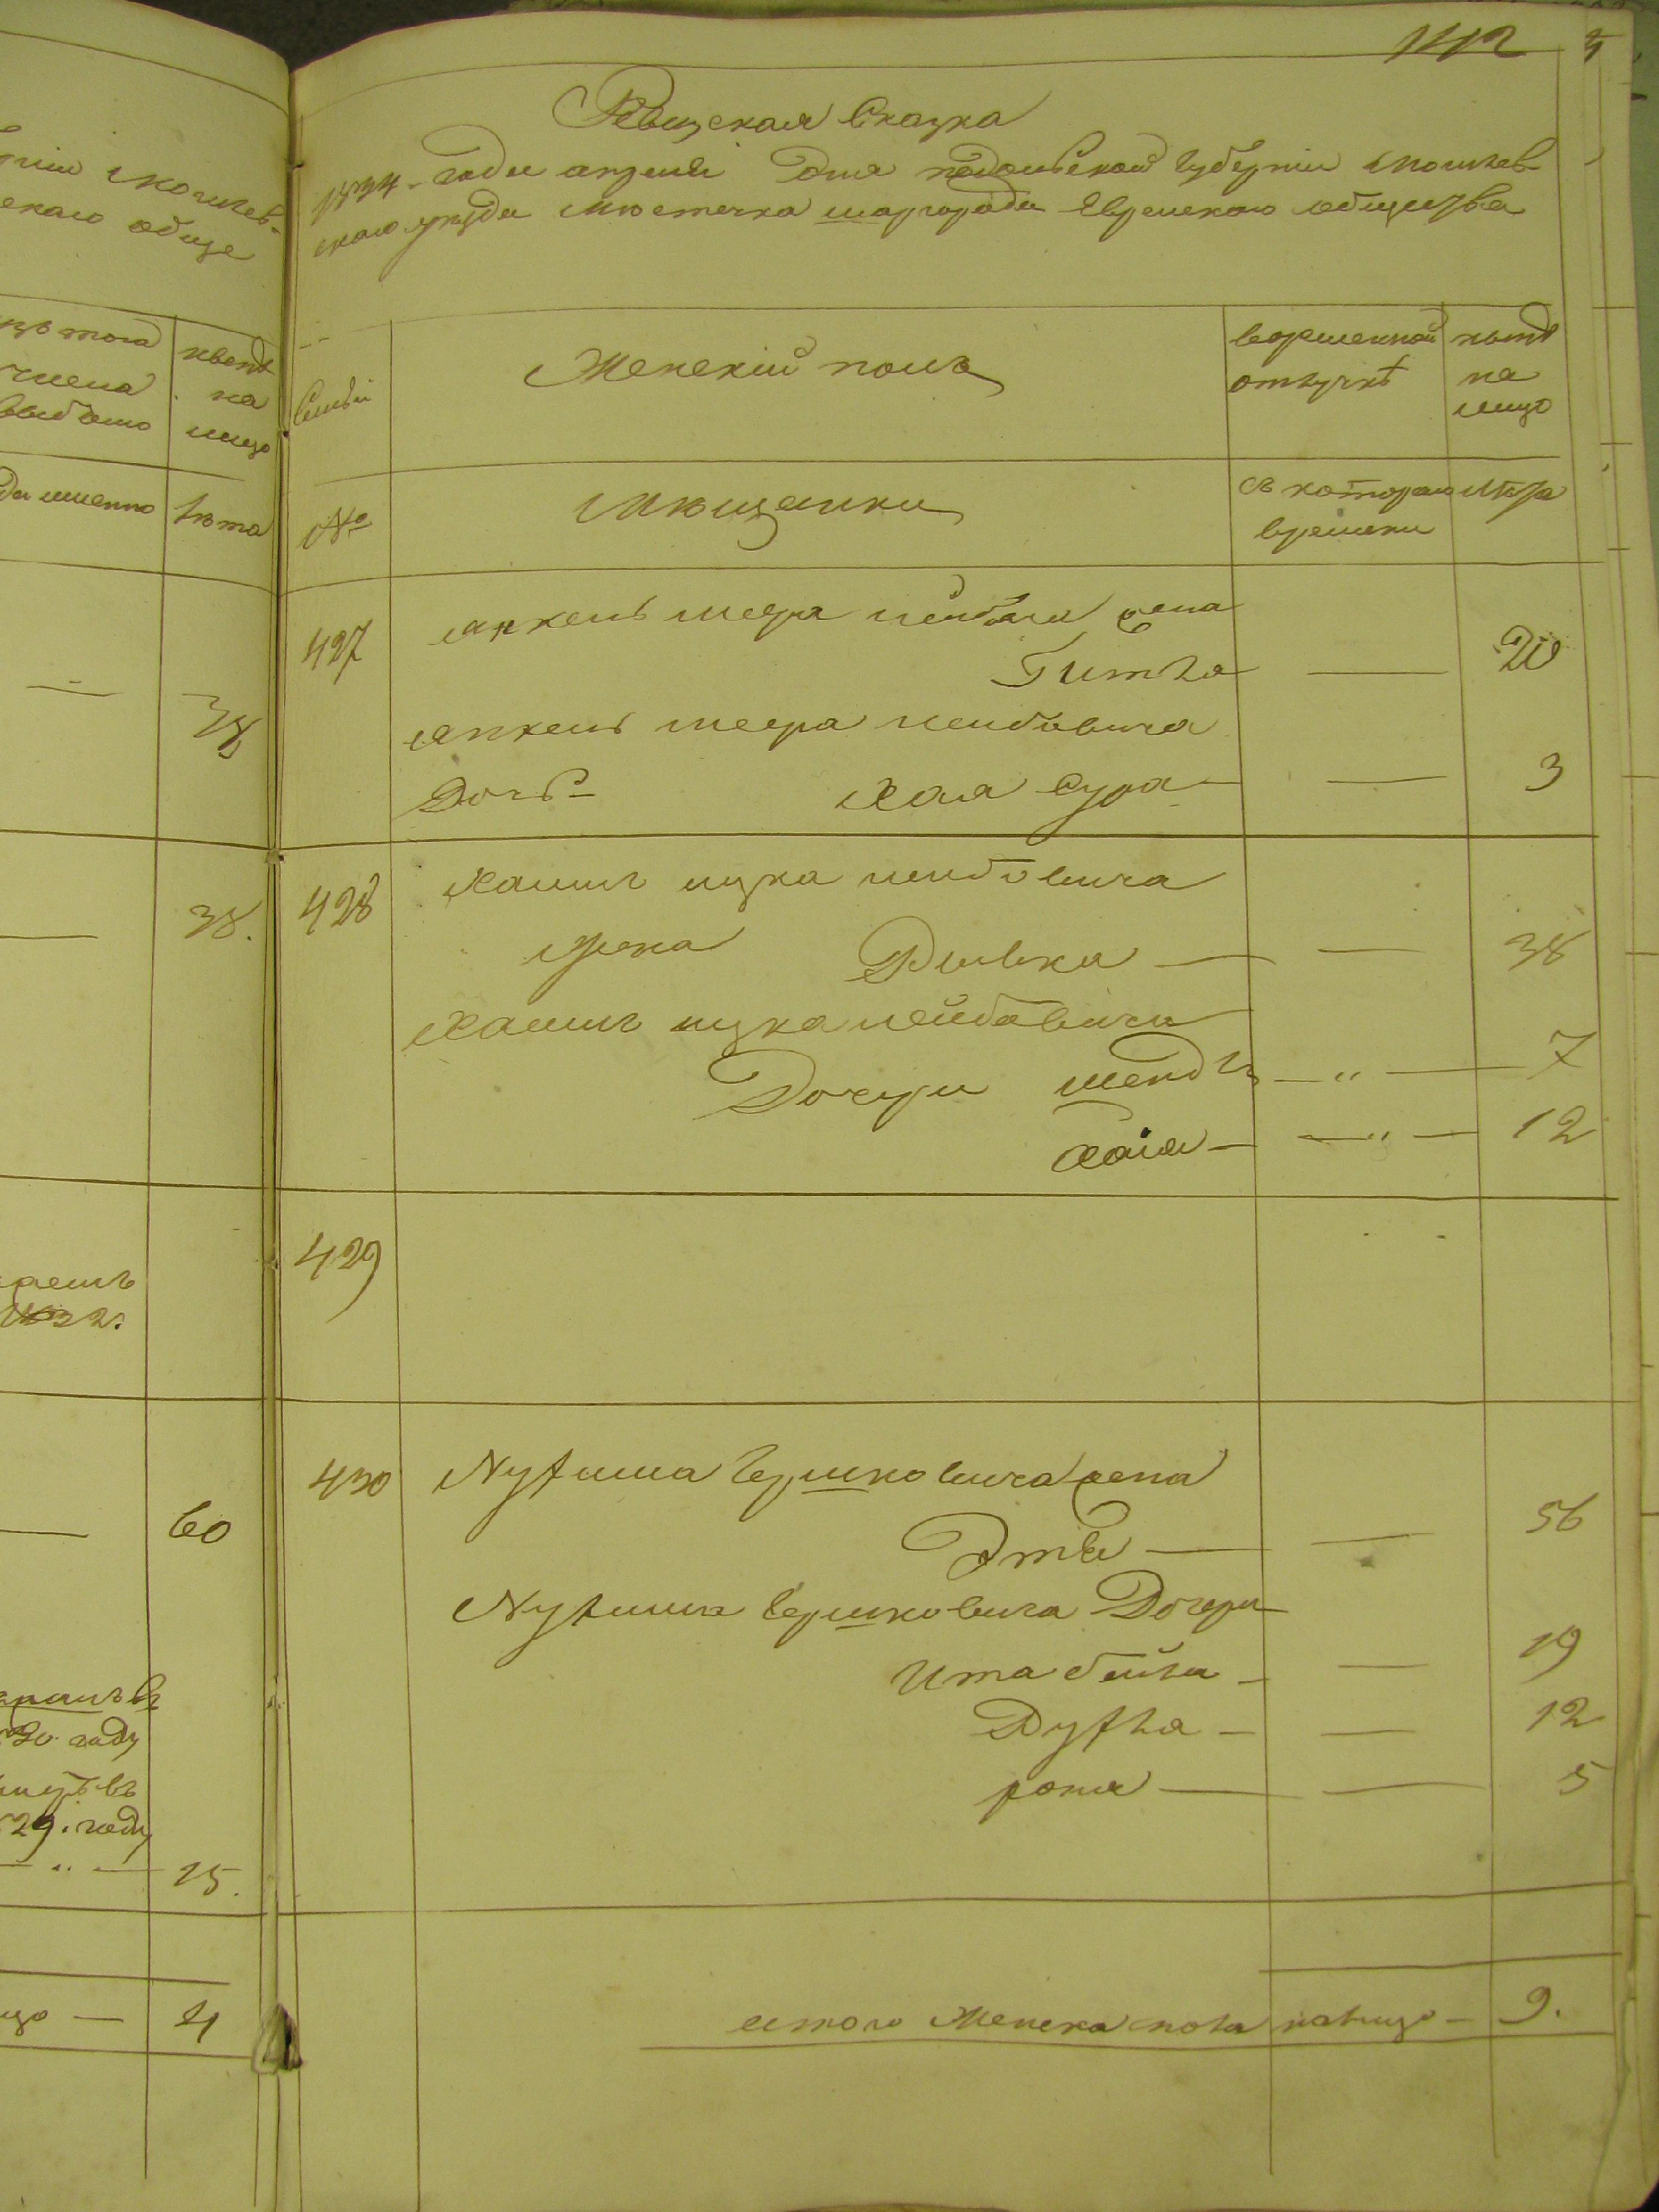 1412
Ревизская Сказка
1834 года апреля дня подольской губернии могилев
скаго уезда местечка шаргорода Еврейского общества
Семьи
Женский полъ
временной
отлучке
ныне
на
лицо
№
Мещанки
съ котораго
времени
лета
427
янкель меера лейбови жена
Гитля
20
янкель меера лейбовича
Дочь
Хая Сура
3
428
Хаима ицка лейбовича
жена
Рывка
38
Хаима ицка лейбовича
Дочери
шендля
7
хаія
12
429
430
Нухима гершковича жена
Этя
56
Нухима гершковича Дочери
Ита бейля
19
Рухля
12
роня
5
итого женска пола налицо
9.
могилев
скаго обще
изъ того
числа
выбыло
ныне
на
лицо
лета
38
38.
60
30. году
29. году
15.
4